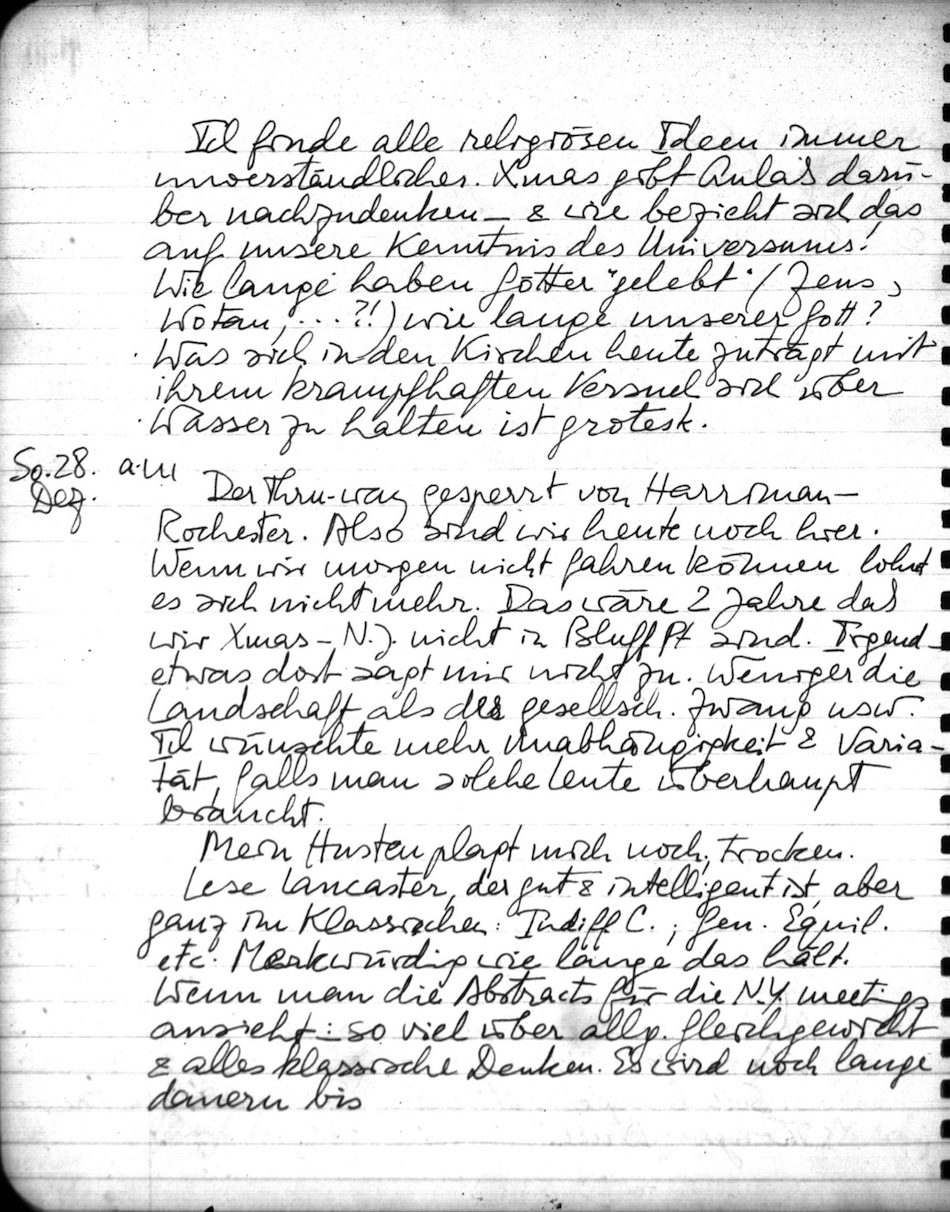 Ich finde alle religiösen Ideen immer
unverständlicher. Xmas gibt Anlaß darü-
ber nachzudenken – & wie bezieht sich das
auf unsere Kenntnis des Universums!
Wie lange haben Götter "gelebt" (Zeus,
Wotan, ...?!) wie lange unserer Gott?
Was sich in den Kirchen heute zuträgt mit
ihrem krampfhaften Versuch sich über
Wasser zu halten ist grotesk.
So. 28. a.m
Dez.
Der Thru-way gesperrt von Harriman–
Rochester. Also sind wir heute noch hier.
Wenn wir morgen nicht fahren können lohnt
es sich nicht mehr. Das wäre 2 Jahre daß
wir Xmas – N.J. nicht in Bluff Pt sind. Irgend-
etwas dort sagt mir nicht zu. Weniger die
Landschaft als der gesellsch. Zwang usw.
Ich wünschte mehr Unabhängigkeit & Varia-
tät, falls man solche Leute überhaupt
braucht.
Mein Husten plagt mich noch, trocken.
Lese Lancaster, der gut & intelligent ist, aber
ganz im Klassischen: Indiff C.; Gen. Equil.
etc. Merkwürdig wie lange das hält.
Wenn man die Abstracts für die N.Y. meetings
ansieht: so viel über allg. Gleichgewicht
& alles klassische Denken. Es wird noch lange
dauern bis